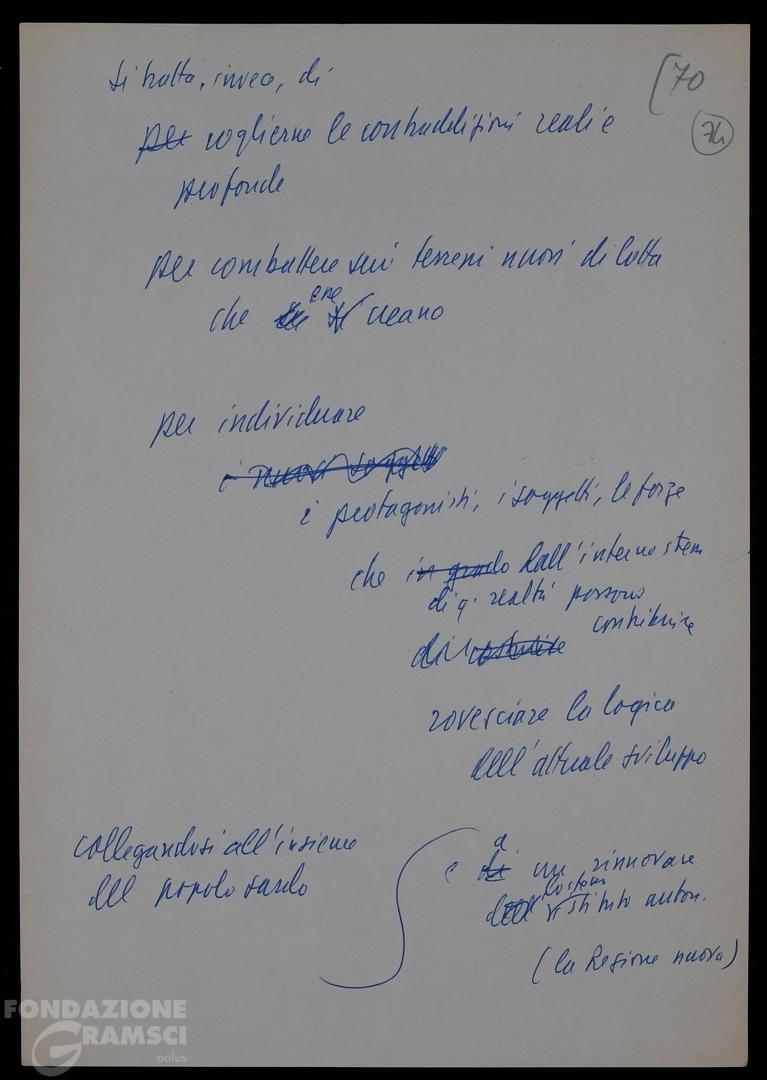 Si tratta, invece, di
[70
74
per coglierne le contraddizioni reali e
profonde
per combattere sui terreni nuovi di lotta
che
che si creano
per individuare
i nuovi soggetti
i protagonisti, i soggetti, le forze
che in grado dall'interno stesso
di q. realtà possono
di contribuire
rovesciare la logica
dell'attuale sviluppo
collegandosi all'insieme
del popolo sardo
a
e di un rinnovare
istituto auton.
(la Regione nuova)
FONDAZIONE
GRAMSCI
onlus